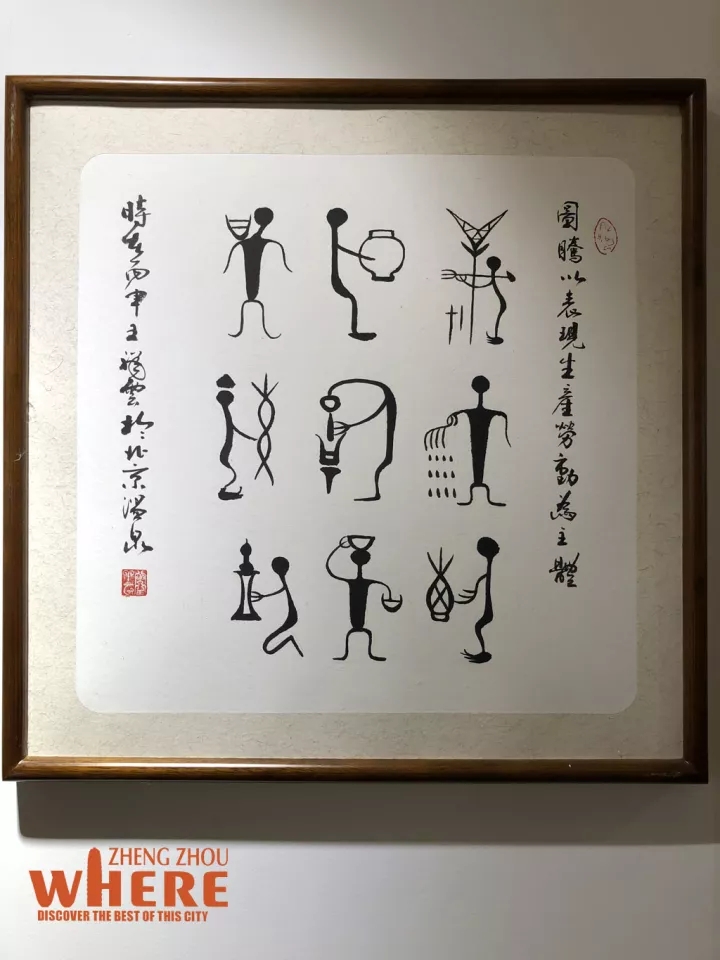 圖騰以表現生産勞動為主體
時在丙申王騰雲於北京溫泉
ZHENG ZHOU
WHERE
DISCOVER THE BEST OF THIS CITY